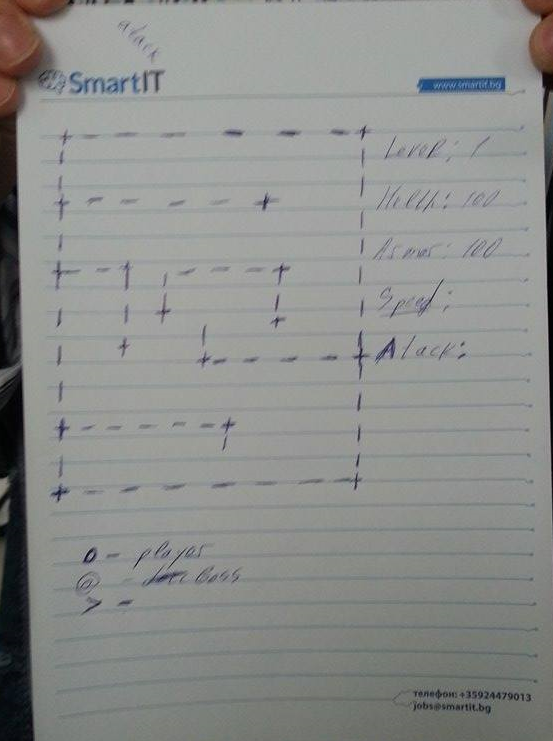 alack
SmartIT
www.smartit.bg
Level: 1
Helth: 100
Asmos: 100
Speed:
Alack:
0 - player
@ - boss
> -
телефон: +35924479013
jobs@smartit.bg